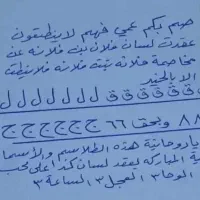 صم بكم عمي فهم لا ينطقون
عقدت لسان فلان بن فلانه عن
مخاصمة فلانه بنت فلانه فلا ينطق
الا بالخير
ق ق ق ق ق ق ق ل ل ل ل ل ل ل
٨٨ وبحق ٦٦ ج ج ج ج ج ج
ياروحانية هذه الطلاسم والأسما
ية المباركة لعقد لسان كذا على محب
الوحا ٣ العجل ٣ الساعة ٣